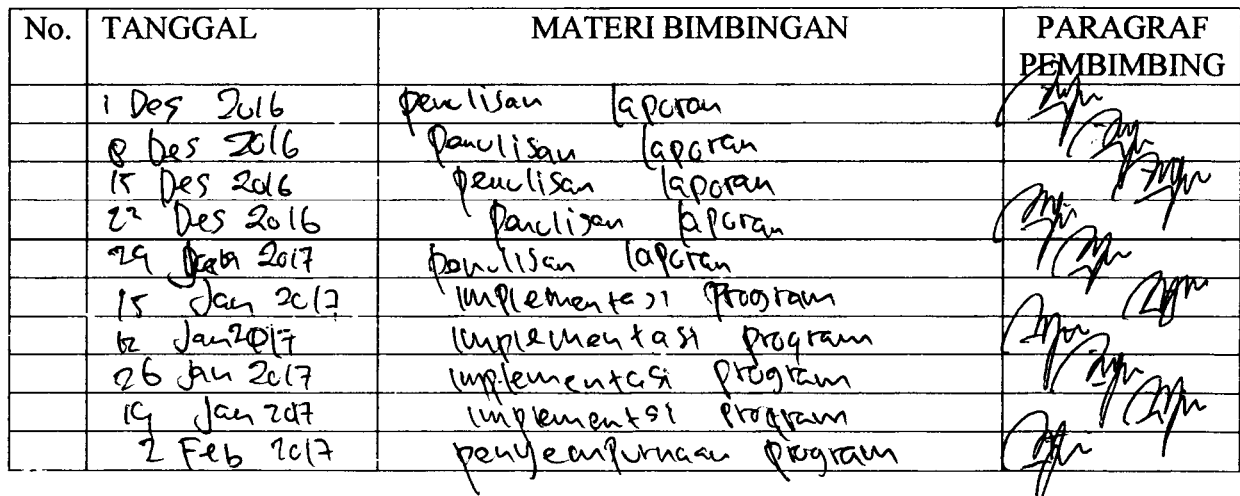 No. TANGGAL MATERI BIMBINGAN PARAGRAF PEMBIMBING
1 Des 2016 penulisan laporan
8 Des 2016 penulisan laporan
15 Des 2016 penulisan laporan
22 Des 2016 penulisan laporan
29 2017 penulisan laporan
15 Jan 2017 implementasi program
12 Jan 2017 implementasi program
26 Jan 2017 implementasi program
19 Jan 2017 implementsi program
2 Feb 2017 penyempurnaan program